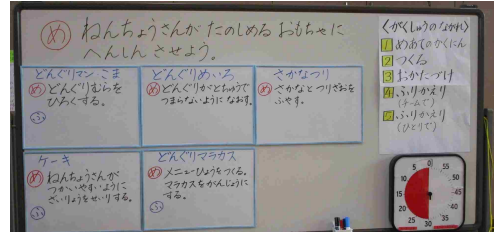 め ねんちょうさんが たのしめる おもちゃに
へんしん させよう。
どんぐりマン こま
め どんぐりむらを
ひろくする。
ふ
どんぐりめいろ
め どんぐりがとちゅうで
つまらないように なおす。
さかなつり
め さかなと つりざおを
ふやす。
ケーキ
め ねんちょうさんが
つかいやすいように
ざいりょうをせいりする。
ふ
どんぐりマラカス
め メニューひょうをつくる。
マラカスをがんじょうに
する。
ふ
〈がくしゅうのながれ〉
1 めあてのかくにん
2 つくる
3 おかたづけ
4 ふりかえり
(チームで)
5 ふりかえり
(ひとりで)
0
5
10
15
20
25
30
35
40
45
50
55